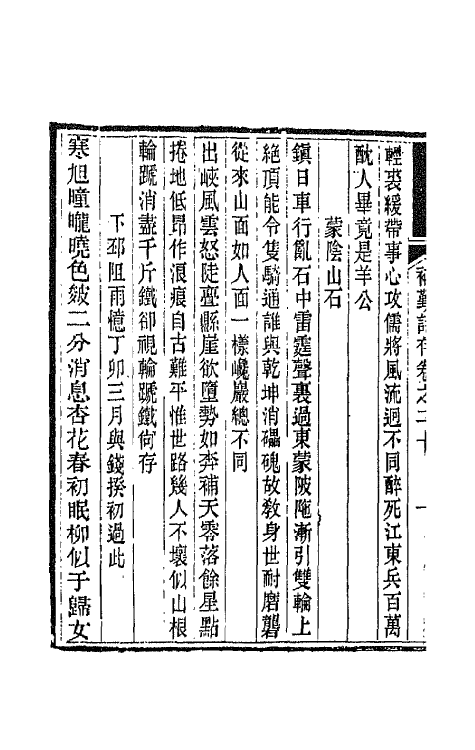 輕裘緩帶事心攻儒將風流迥不同醉死江東兵百萬
酖人畢竟是羊公
蒙陰山石
鎭日車行亂石中雷霆聲裏過東蒙陂陁漸引雙輪上
絕頂能令隻騎通誰與乾坤消礧磈故敎身世耐磨礱
從來山面如人面一樣巉巖總不同
出峽風雲怒陡壘縣崖欲墮勢如奔補天零落餘星點
捲地低昻作浪痕自古難平惟世路幾人不壞似山根
輪蹏消盡千斤鐵卻視輪蹏鐵尙存
下邳阻雨憶丁卯三月與錢揆初過此
寒旭曈曨曉色皴二分消息杏花春初眠柳似子歸女